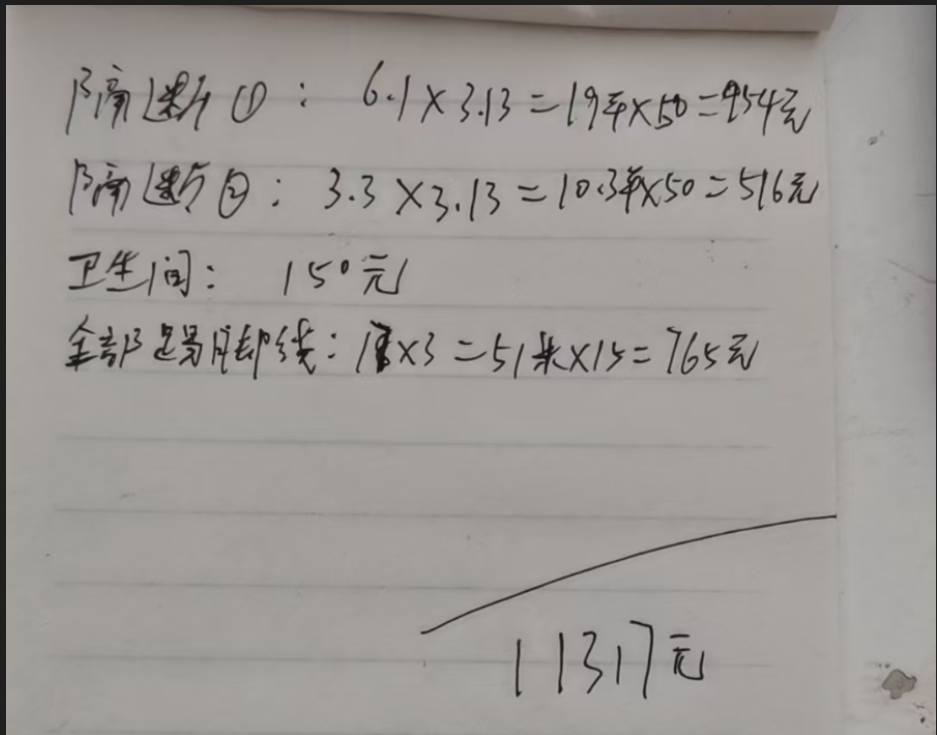 隔断①： 6.1×3.13=19平×50=954元
隔断②： 3.3×3.13=10.3平×50=516元
卫生间： 150元
全部踢脚线：17×3=51米×15=765元
11317元